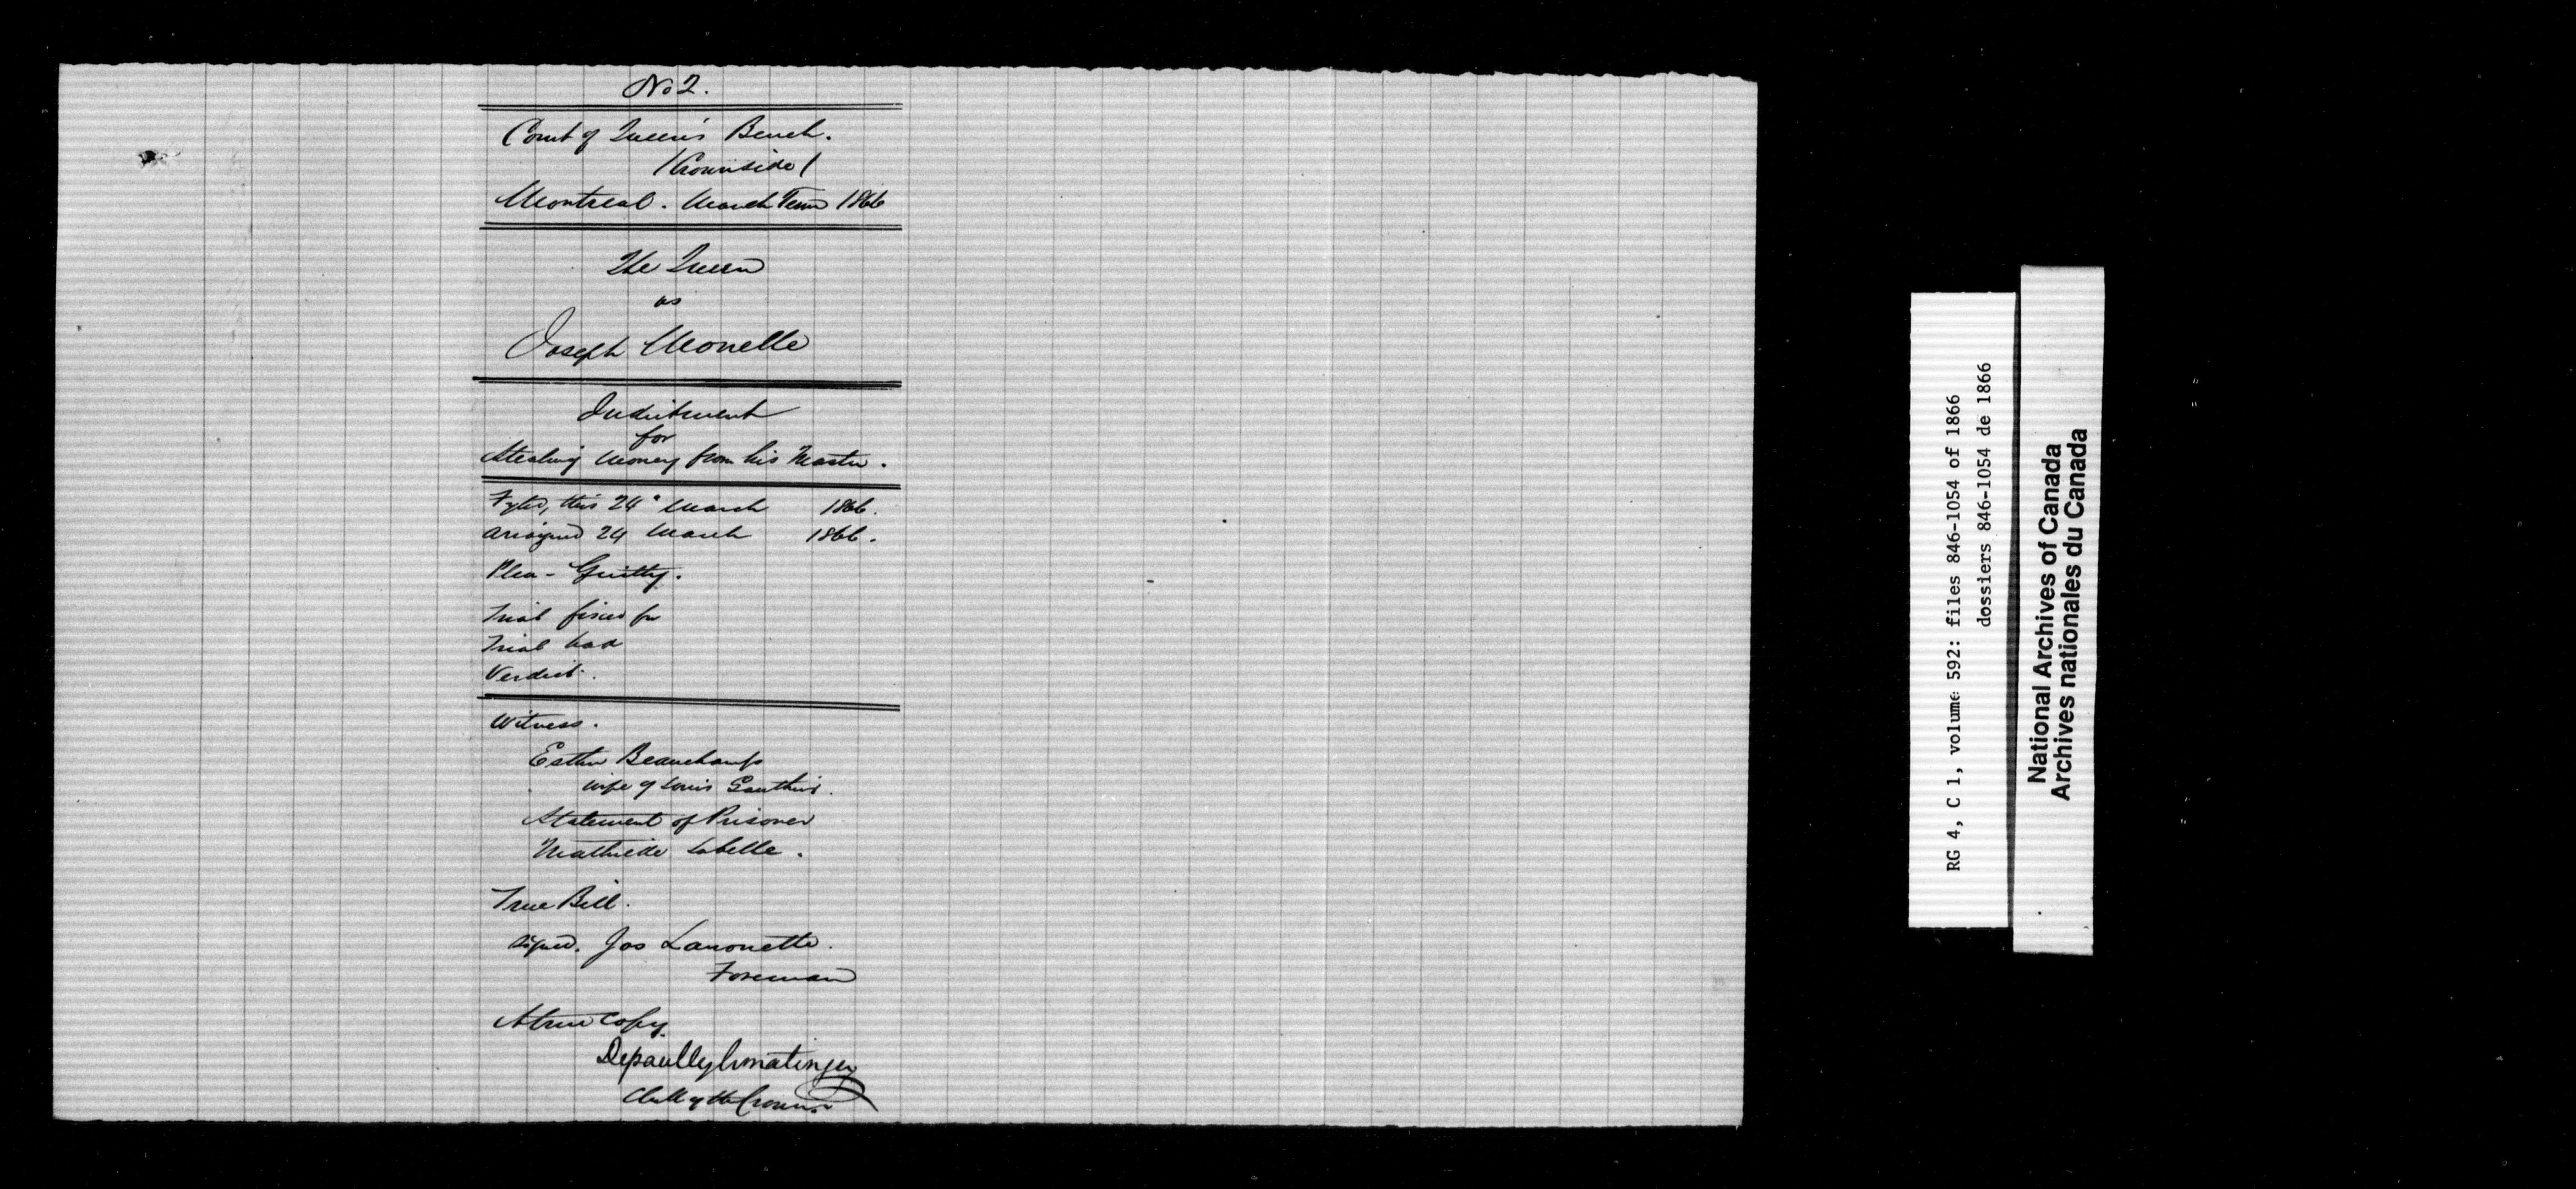 No 2.
Court of Queen's Bench.
/Crownside/
Montreal. March Term 1866
The Queen
vs
Joseph Monelle
Indictment
for
Stealing Money from his Master.
Fyled, this 24" March 1866.
Arraigned 24 March 1866.
Plea - Guilty.
Trial fixed for
Trial had
Verdict.
Witness.
Esther Beauchamp
wife of Louis Gauthier.
Statement of Prisoner
Mathilde Labelle.
True Bill.
signed. Jos Lanouette.
Foreman
A true copy.
Clerk of the Crown.
RG 4, C 1, volume 592: files 846-1054 of 1866
dossiers 846-1054 de 1866
National Archives of Canada
Archives nationales du Canada